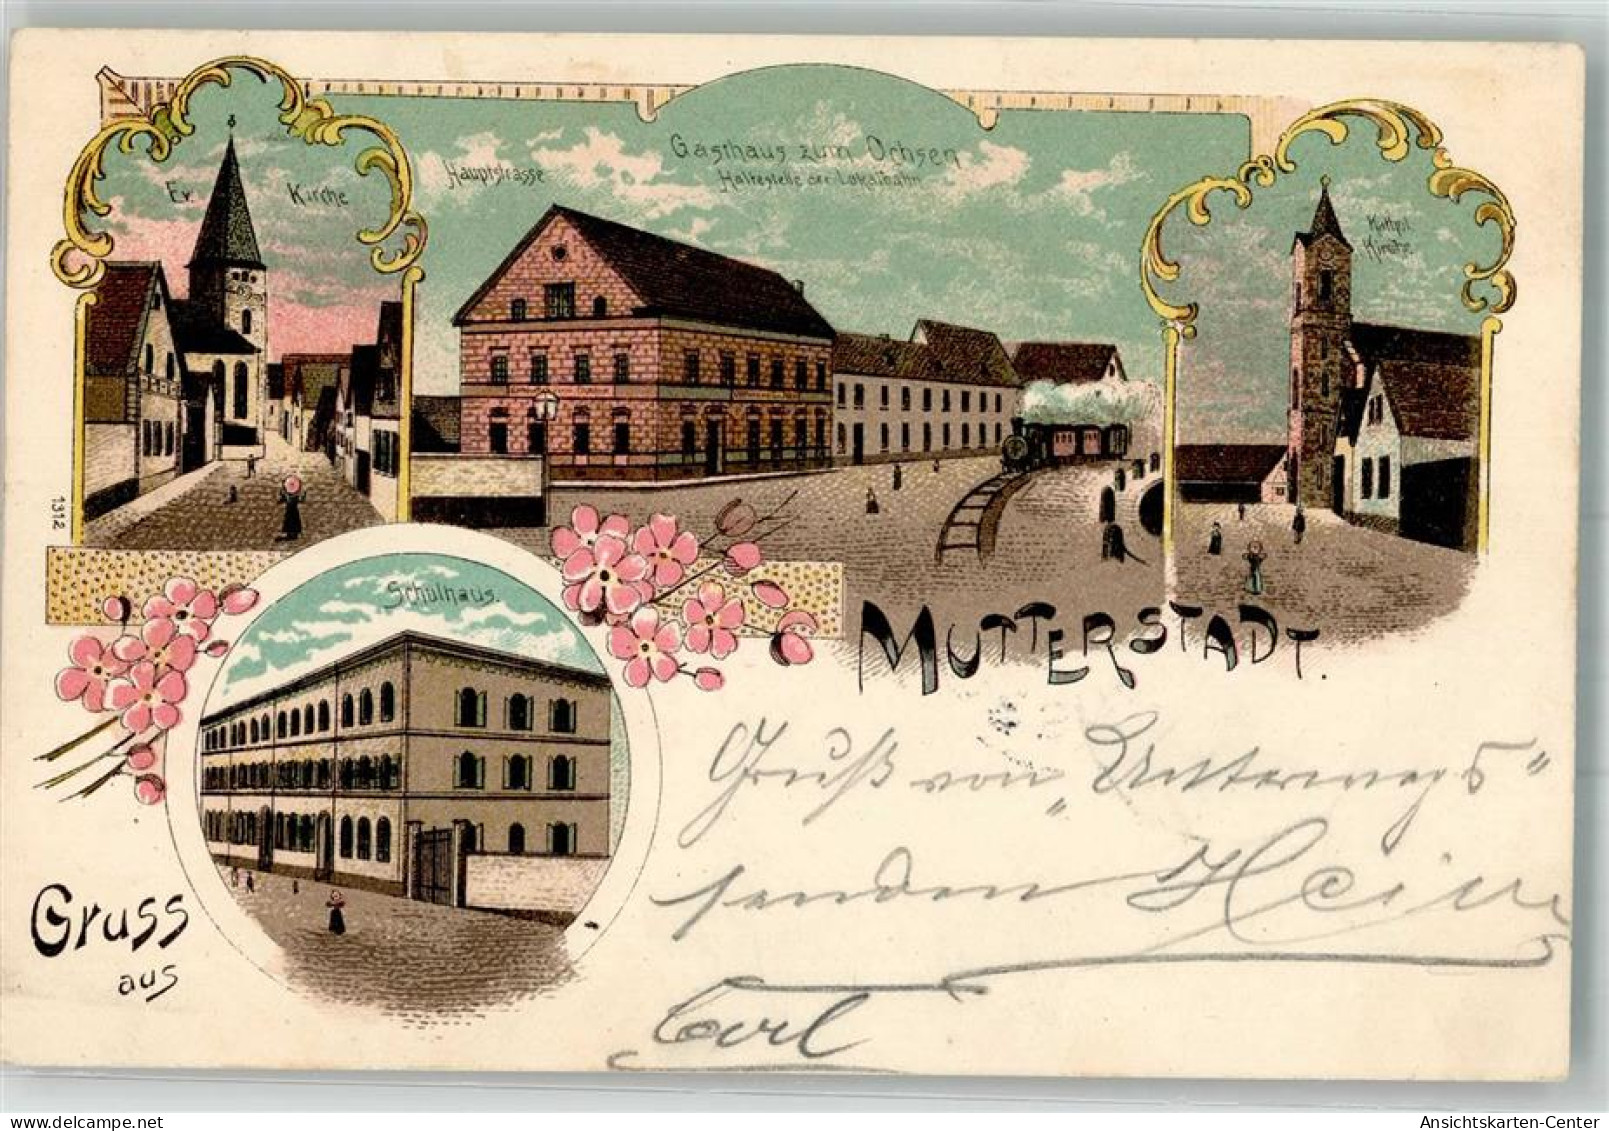 Ev. Kirche
Hauptstrasse
Gasthaus zum Ochsen
Haltestelle der Lokalbahn
Kathol.
Kirche.
1312
Schulhaus.
MUTTERSTADT.
Gruss
aus
Gruß von „Unterwegs"
senden Hein
Carl
Ansichtskarten-Center